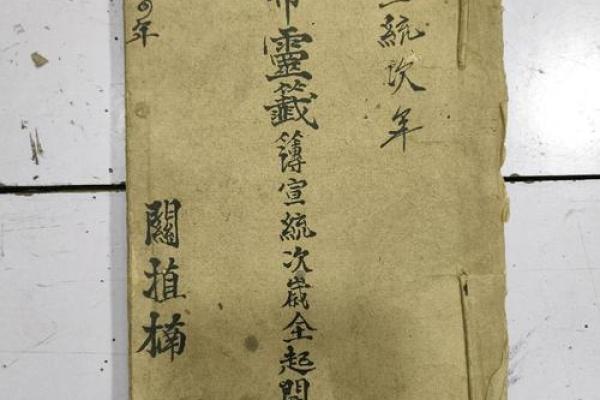 統次年
靈籤簿宣統次歲仝起
年
關植楠